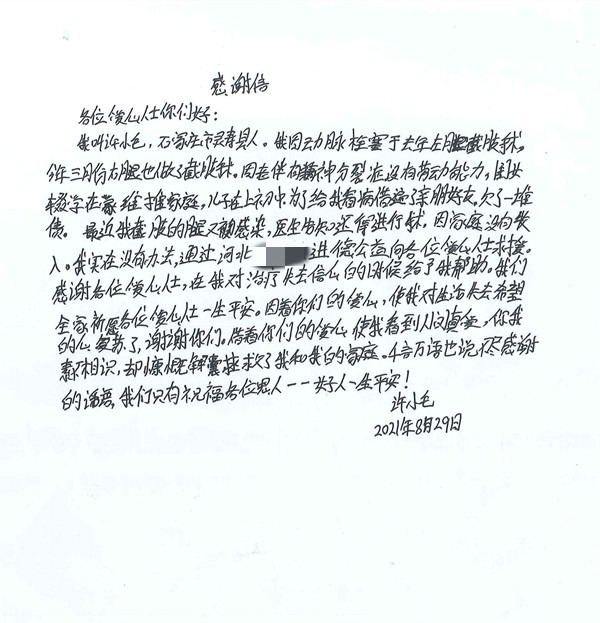 感谢信
各位爱心人士你们好:
我叫许小仓,石家庄市灵寿县人。我因动脉栓塞于去年左腿截肢术,
今年三月份右腿也做了截肢术。因老伴有精神分裂症没有劳动能力,闺女
辍学在家维持家庭,儿子在上初中为了给我看病借遍了亲朋好友,欠了一堆
债。最近我截肢的腿又被感染,医生告知还得进行手术,因家庭没有收
入。我实在没有办法,通过河北 进德公益向各位爱心人士求援。
感谢各位爱心人士,在我对治疗失去信心的时候给了我帮助。我们
全家祈愿各位爱心人士一生平安。因着你们的爱心,使我对生活失去希望
的心复苏了,谢谢你们。借着你们的爱心使我看到人间真爱,你我
素不相识,却慷慨解囊拯救了我和我的家庭。千言万语也说不尽感谢
的话语,我们只有祝福各位恩人——好人一生平安!
许小仓
2021年8月29日